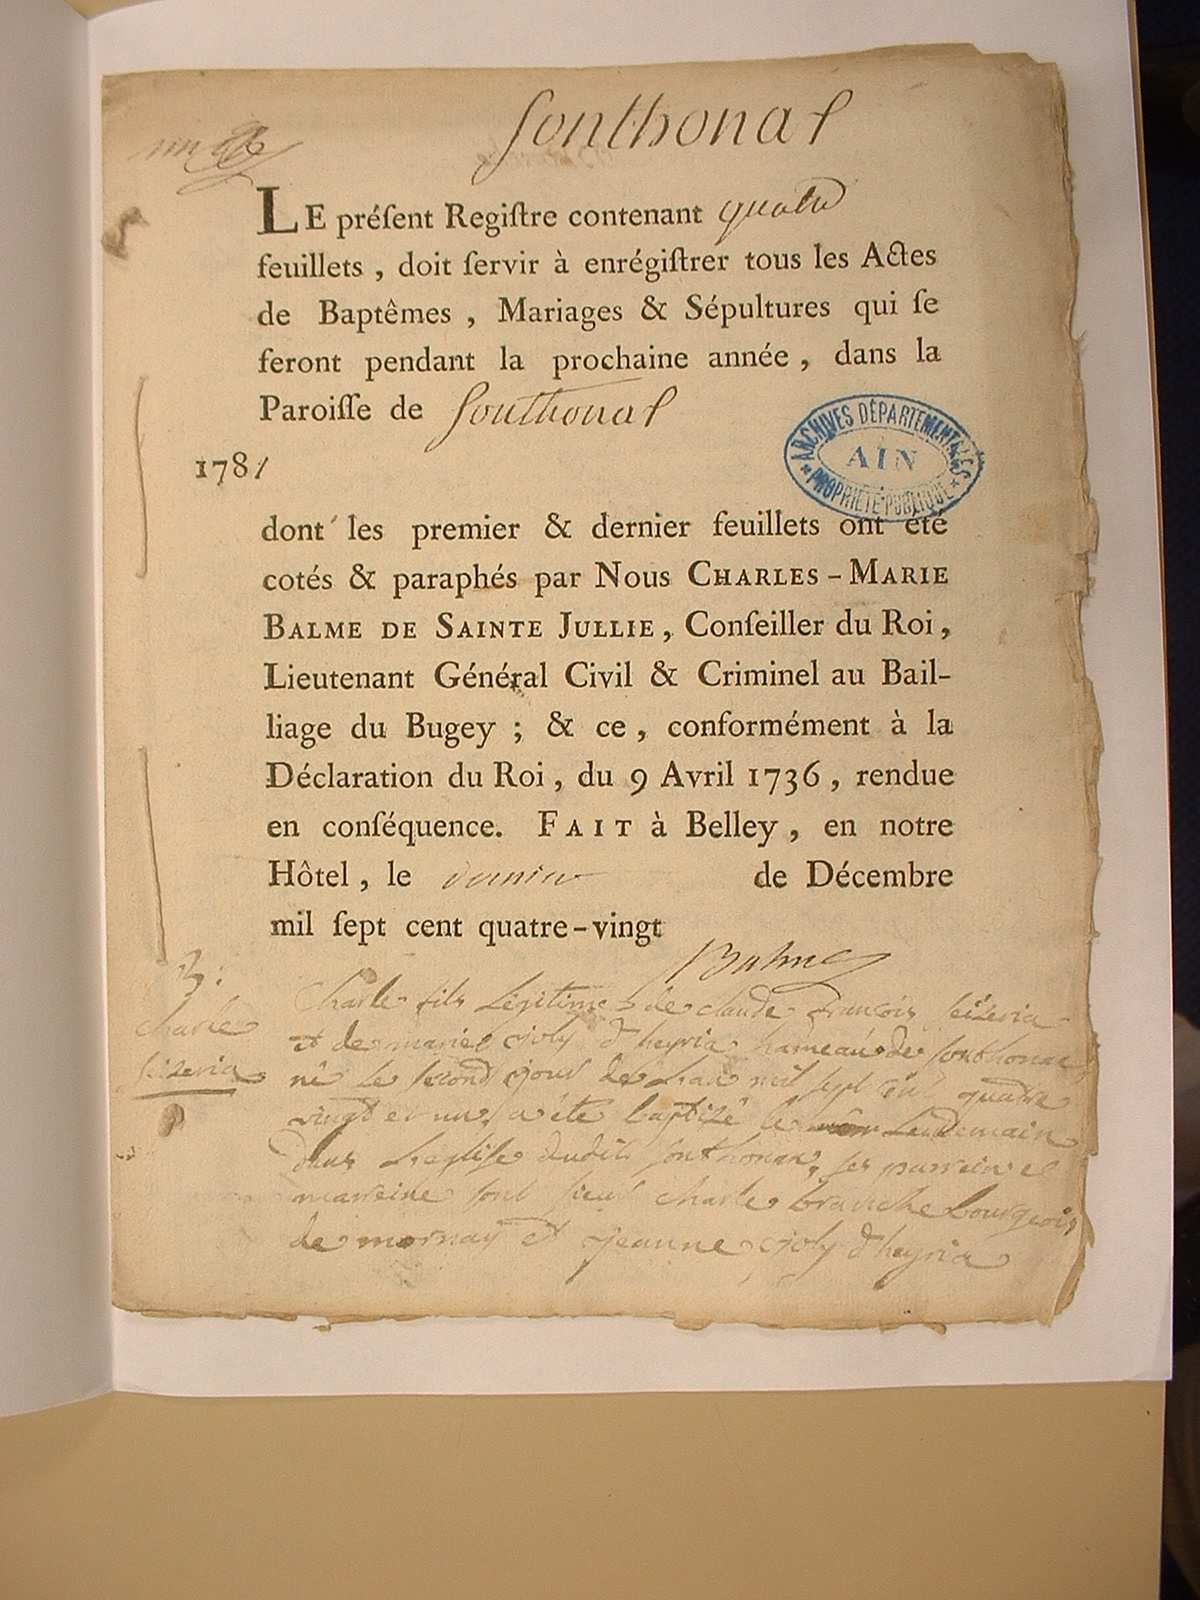 Sonthonat
LE préſent Regiſtre contenant quatre
feuillets, doit ſervir à enrégiſtrer tous les Actes
de Baptêmes, Mariages & Sépultures qui ſe
feront pendant la prochaine année, dans la
Paroiſſe de Sonthonat
1781
ARCHIVES DÉPARTEMENTALES
AIN
PROPRIÉTÉ PUBLIQUE
dont les premier & dernier feuillets ont été
cotés & paraphés par Nous CHARLES-MARIE
BALME DE SAINTE JULLIE, Conſeiller du Roi,
Lieutenant Général Civil & Criminel au Bail-
liage du Bugey ; & ce, conformément à la
Déclaration du Roi, du 9 Avril 1736, rendue
en conſéquence. FAIT à Belley, en notre
Hôtel, le dernier de Décembre
mil ſept cent quatre-vingt
Balme
B:
Charle
sizeria
Charle fils Légitime de claude François seizeria
et de marie joly d'heyria hameau de sonthonax
né le second jour de mil sept quatre
vingt et un, a été baptizé le Lendemain
dans L'eglise dudit sonthonax, ses parrein et
marreine sont sieur charle branche bourgeois
de mornay et jeanne joly d'heyria